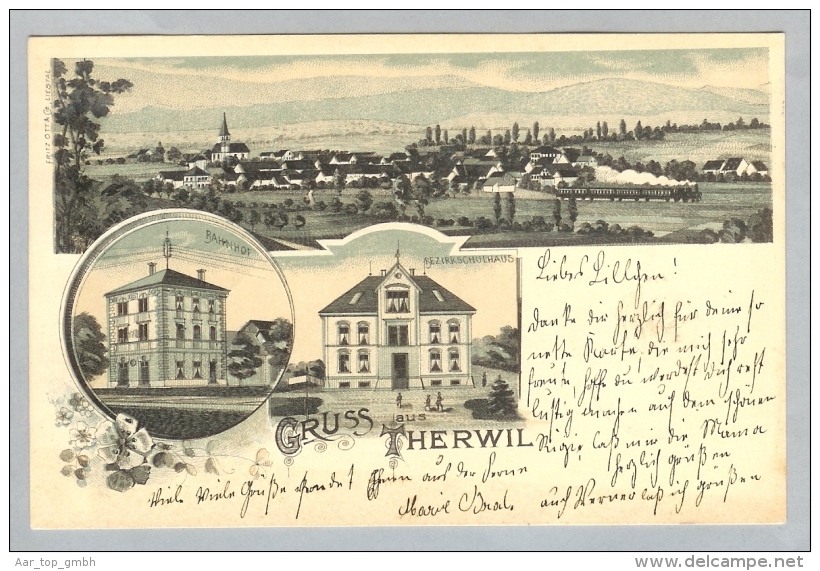 FRITZ OTTA LIESTAL
BAHNHOF
BEZIRKSCHULHAUS
GRUSS aus THERWIL
Liebes Lillchen!
Danke dir herzlich für deine so
nette Karte, die mich sehr
freute, hoffe du werdest dich recht
lustig machen auf dem schönen
laß mir die Mama
herzlich grüßen
auch Werner laß ich grüßen
Viele Viele Grüße sendet Ihnen aus der Ferne
Marie
Aar_top_gmbh
www.delcampe.net